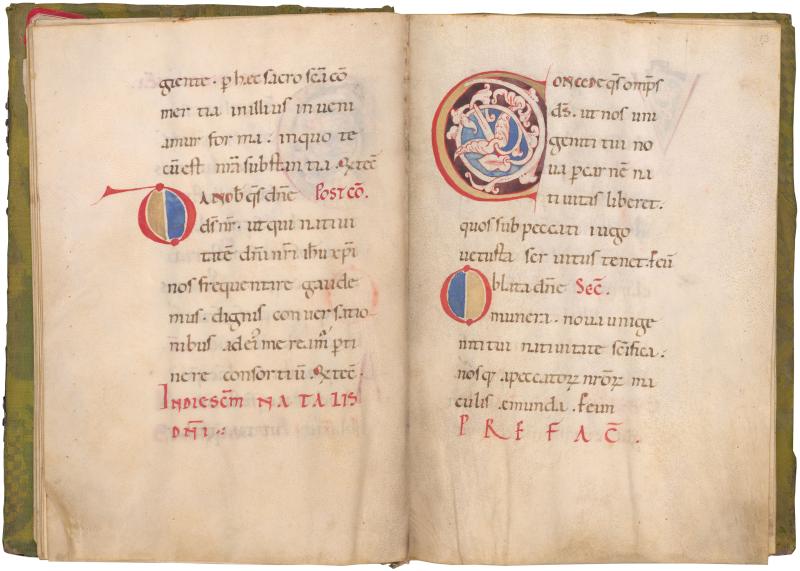 giente · p̄ hec sacro sc̄a cō
mertia inillius inueni
amur forma · inquo te
cū est nr̄a substantia · Qtec̄
DA NOB' qs dn̄e Postcō.
ds̄ nr̄ · ut qui natiui
tatē dn̄i nr̄i ihu xp̄i
nos frequentare gaude
mus · dignis conuersatio-
nibus ad ei' me reamꝰ p̄ti
nere consortiū · Qtec̄ ·
INDIE SC̄M NATALIS
DN̄I ·
13
CONCEDE qs omp̄s
ds̄ · ut nos uni
geniti tui no
ua p carnē na
tiuitas liberet ·
quos sub peccati iugo
uetusta seruitus tenet · P eū
Oblata dn̄e Sec̄.
munera · noua unige
niti tui natiuitate sc̄ifica ·
nosq; a peccatoꝝ nr̄oꝝ ma
culis emunda · P eun
PREFAC̄ .